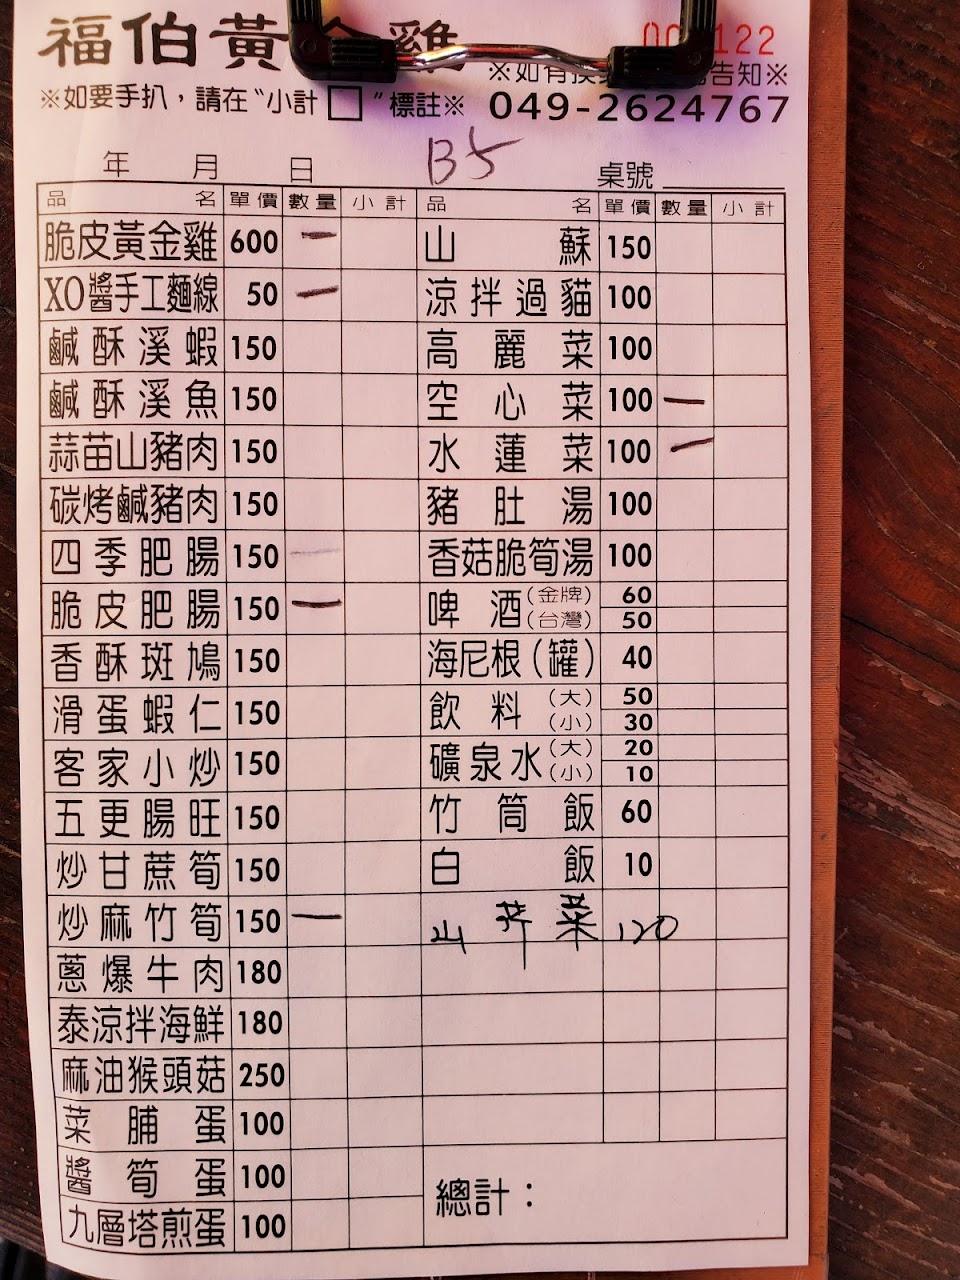 福伯黃金雞
122
※如要手扒，請在“小計□”標註※
告知※
049-2624767
年 月 日 B5 桌號
品名 單價 數量 小計 品名 單價 數量 小計
脆皮黃金雞 600 一 山蘇 150
XO醬手工麵線 50 一 涼拌過貓 100
鹹酥溪蝦 150 高麗菜 100
鹹酥溪魚 150 空心菜 100 一
蒜苗山豬肉 150 水蓮菜 100 一
碳烤鹹豬肉 150 豬肚湯 100
四季肥腸 150 一 香菇脆筍湯 100
脆皮肥腸 150 一 啤酒(金牌) 60
(台灣) 50
香酥斑鳩 150 海尼根(罐) 40
滑蛋蝦仁 150 飲料(大) 50
(小) 30
客家小炒 150 礦泉水(大) 20
(小) 10
五更腸旺 150 竹筒飯 60
炒甘蔗筍 150 白飯 10
炒麻竹筍 150 一 山芹菜 120
蔥爆牛肉 180
泰涼拌海鮮 180
麻油猴頭菇 250
菜脯蛋 100
醬筍蛋 100 總計：
九層塔煎蛋 100